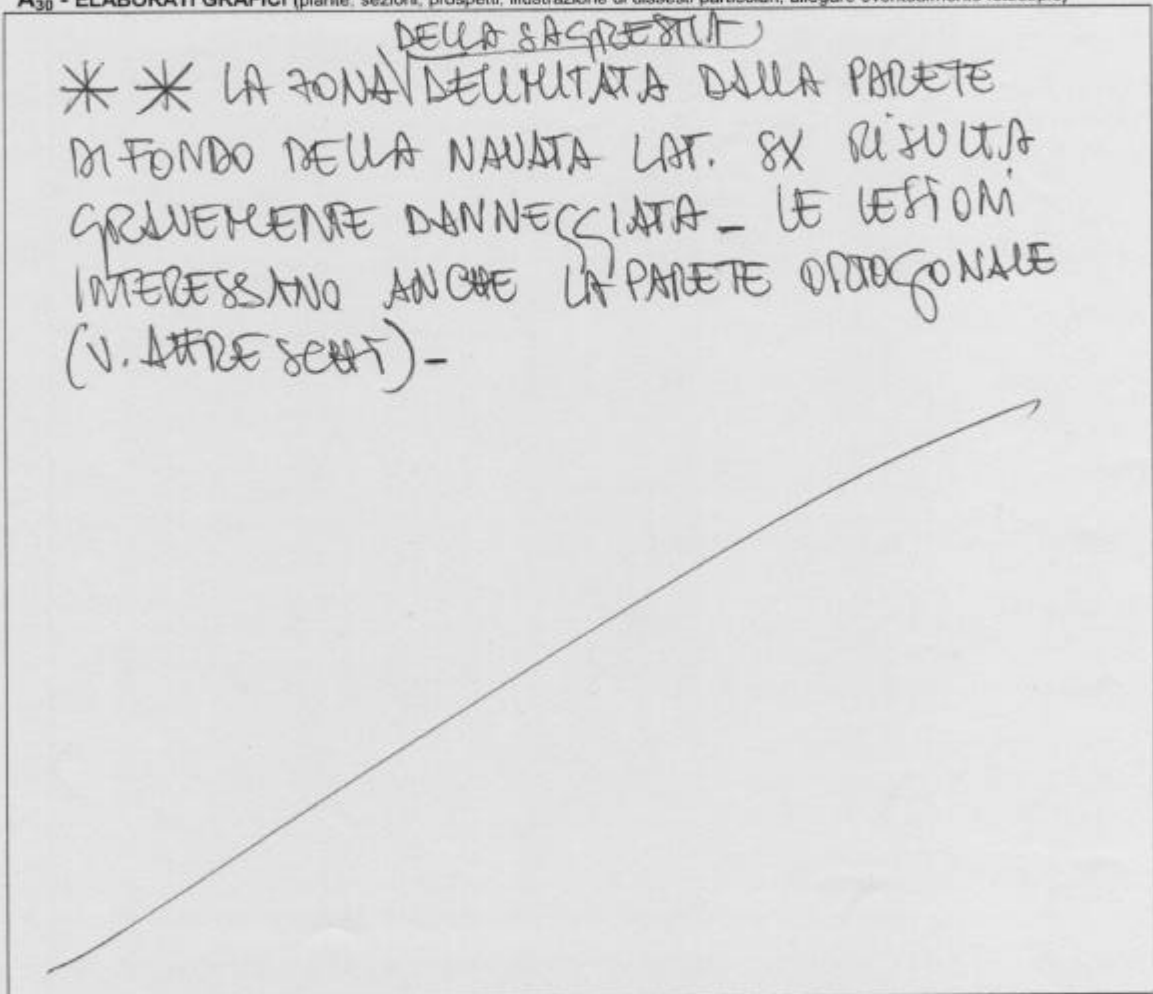 A30 - ELABORATI GRAFICI (piante, sezioni, prospetti, illustrazione di dissesti particolari, allegare eventualmente fotocopie)
DELLA SAGRESTIA
** LA ZONA DELIMITATA DALLA PARETE
DI FONDO DELLA NAVATA LAT. SX RISULTA
GRAVEMENTE DANNEGGIATA_ LE LESIONI
INTERESSANO ANCHE LA PARETE ORTOGONALE
(V. AFFRESCHI)_